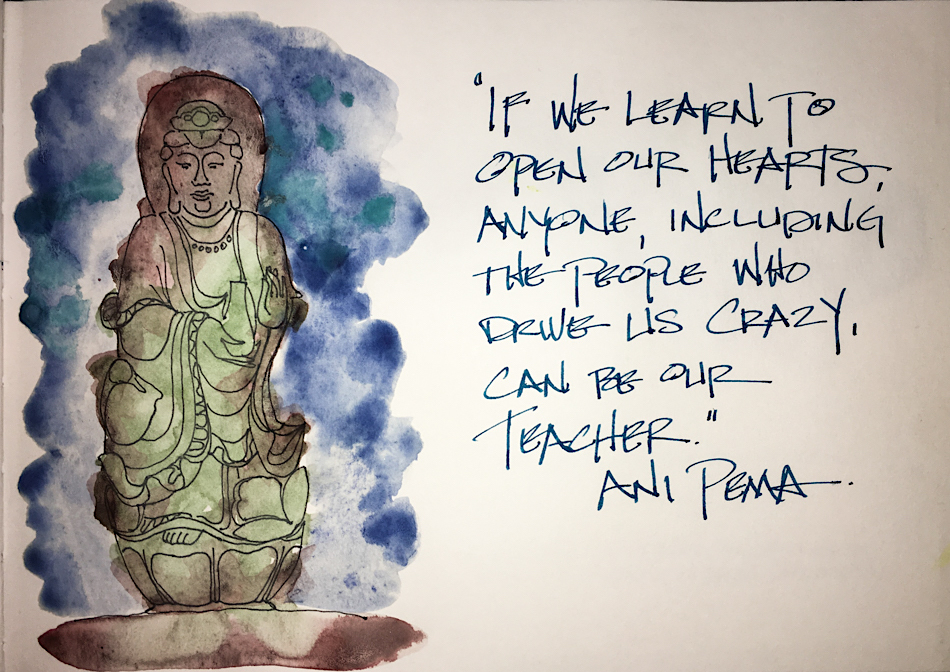 "IF WE LEARN TO
OPEN OUR HEARTS,
ANYONE, INCLUDING
THE PEOPLE WHO
DRIVE US CRAZY,
CAN BE OUR
TEACHER."
ANI PEMA.